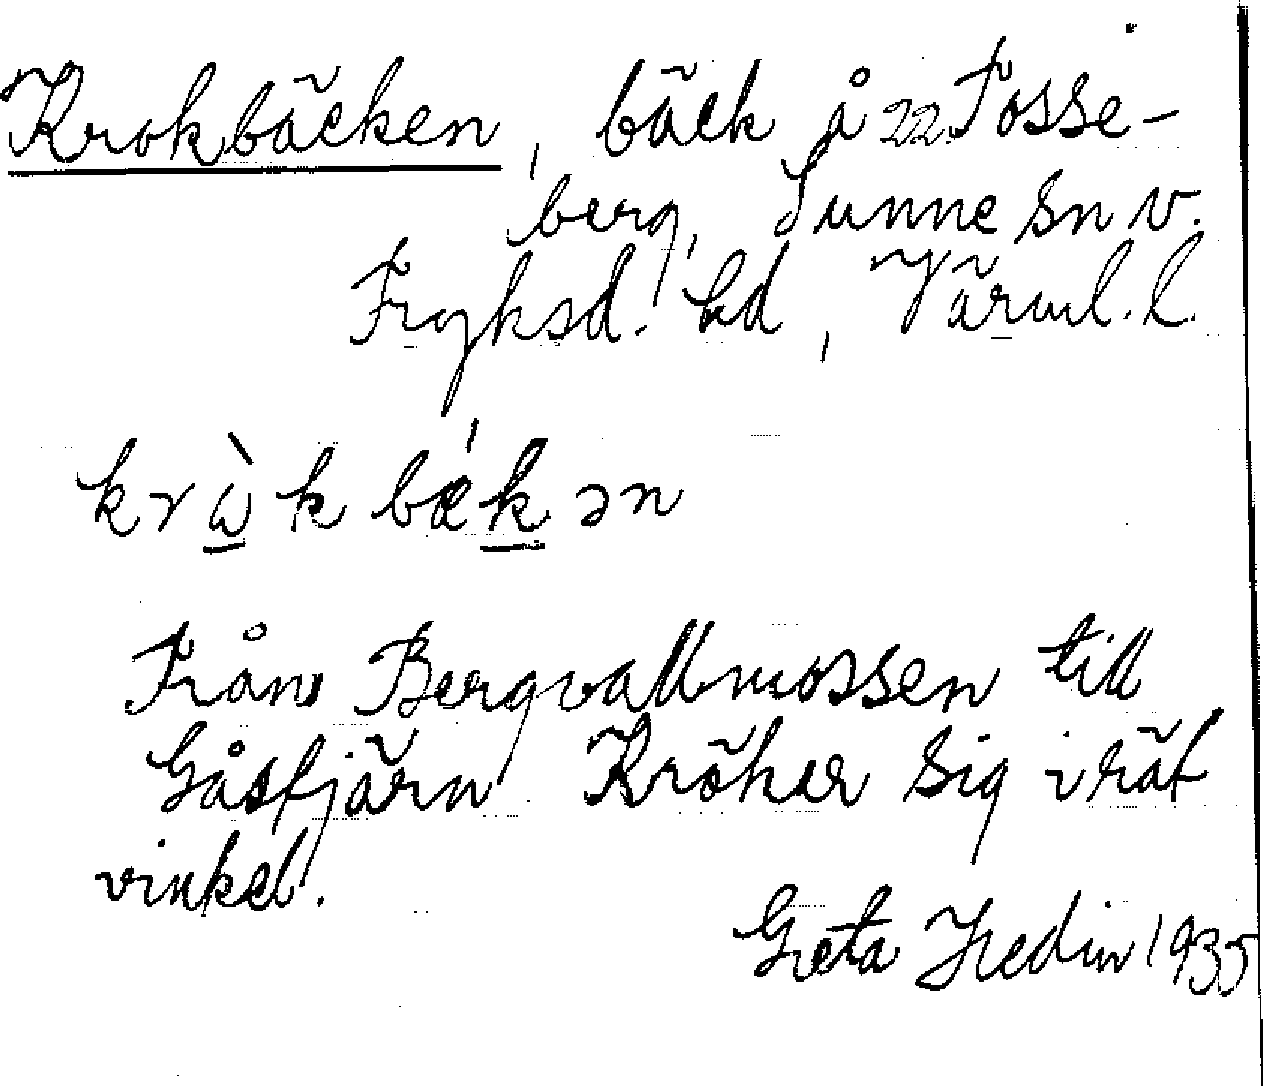 Krokbäcken, bäck å 22 Fosse-
berg, Sunne sn v.
Fryksd. hd, Värml. l.
krὼkbækən
Från Bergvallmossen till
Gåstjärn. Kröker sig i rät
vinkel.
Greta Hedin 1935